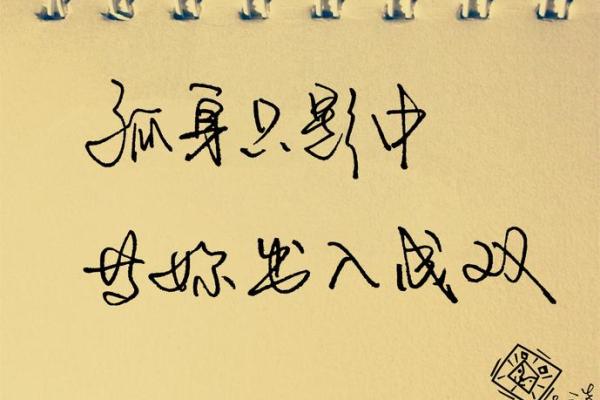 孤身只影中
梦妳出入成双